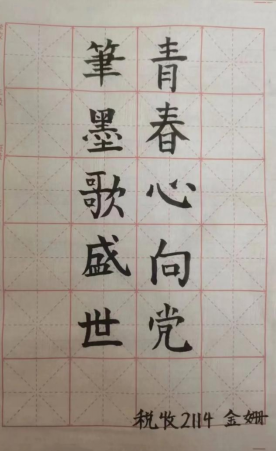 青春心向党
筆墨歌盛世
税收2114 金姗